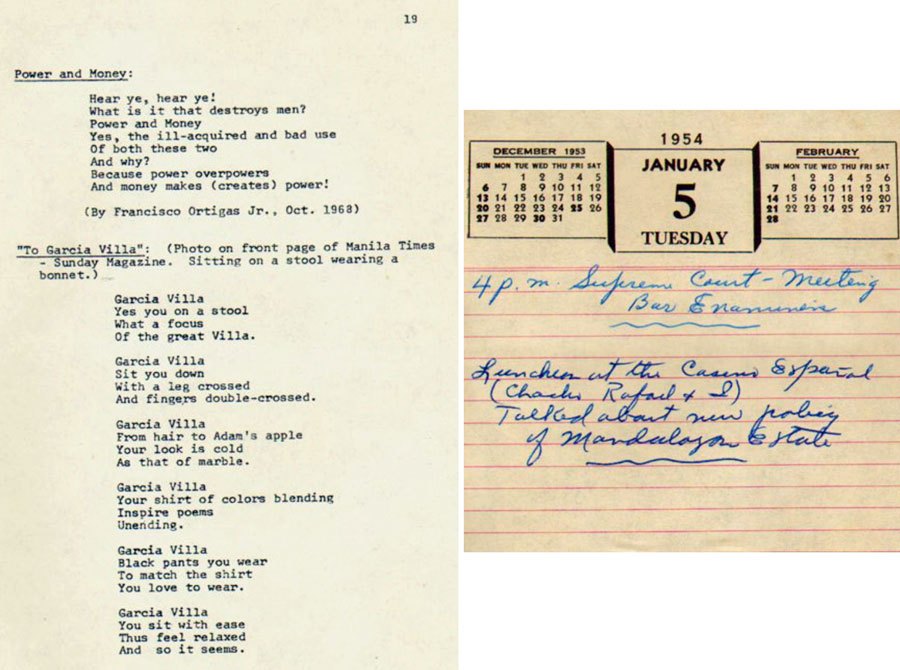 19
Power and Money:
Hear ye, hear ye!
What is it that destroys men?
Power and Money
Yes, the ill-acquired and bad use
Of both these two
And why?
Because power overpowers
And money makes (creates) power!
(By Francisco Ortigas Jr., Oct. 1968)
"To Garcia Villa": (Photo on front page of Manila Times
- Sunday Magazine. Sitting on a stool wearing a
bonnet.)
Garcia Villa
Yes you on a stool
What a focus
Of the great Villa.
Garcia Villa
Sit you down
With a leg crossed
And fingers double-crossed.
Garcia Villa
From hair to Adam's apple
Your look is cold
As that of marble.
Garcia Villa
Your shirt of colors blending
Inspire poems
Unending.
Garcia Villa
Black pants you wear
To match the shirt
You love to wear.
Garcia Villa
You sit with ease
Thus feel relaxed
And so it seems.
1954
DECEMBER 1953
SUN MON TUE WED THU FRI SAT
1 2 3 4 5
6 7 8 9 10 11 12
13 14 15 16 17 18 19
20 21 22 23 24 25 26
27 28 29 30 31
JANUARY
5
TUESDAY
FEBRUARY
SUN MON TUE WED THU FRI SAT
1 2 3 4 5 6
7 8 9 10 11 12 13
14 15 16 17 18 19 20
21 22 23 24 25 26 27
28
4 p.m. Supreme Court - Meeting
Bar Examiners
Luncheon at the Casino Español
(Rafael & I)
Talked about new policy
of Mandaluyong Estate